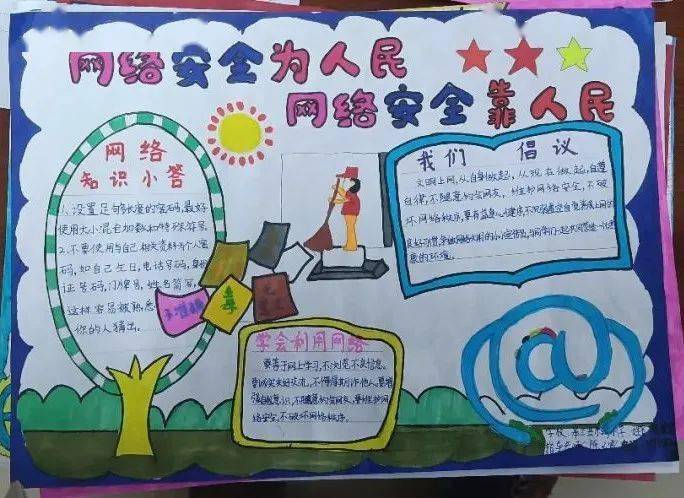 网络安全为人民
网络安全靠人民
网络
知识小答
1、设置足够长度的密码,最好
使用大小混合加数和特殊符号
2、不要使用与自己相关资料个人密
码,如自己生日,电话号码,身份
证号码,门牌号,姓名简写,
这样容易被熟悉
你的人猜出。
我们 倡议
文明上网,从自身做起,从现在做起,自尊
自律,不随意约会网友,维护网络安全,不破
坏网络秩序,要有益身心健康,不沉溺虚拟
良好习惯,
的环境。
学会利用网络
要善于网上学习,不浏览不良信息。
要诚实友好交流,不侮辱欺诈他人。要增
强自护意识,不随意约会网友,要维护网
络安全,不破坏网络秩序。
@